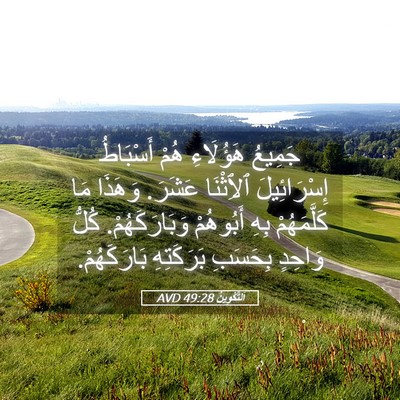 جَمِيعُ هَؤُلَاءِ هُمْ أَسْبَاطُ
إِسْرَائِيلَ ٱلِٱثْنَا عَشَرَ. وَهَذَا مَا
كَلَّمَهُمْ بِهِ أَبُوهُمْ وَبَارَكَهُمْ. كُلُّ
وَاحِدٍ بِحَسَبِ بَرَكَتِهِ بَارَكَهُمْ.
اَلتَّكْوِينُ 49:28 AVD